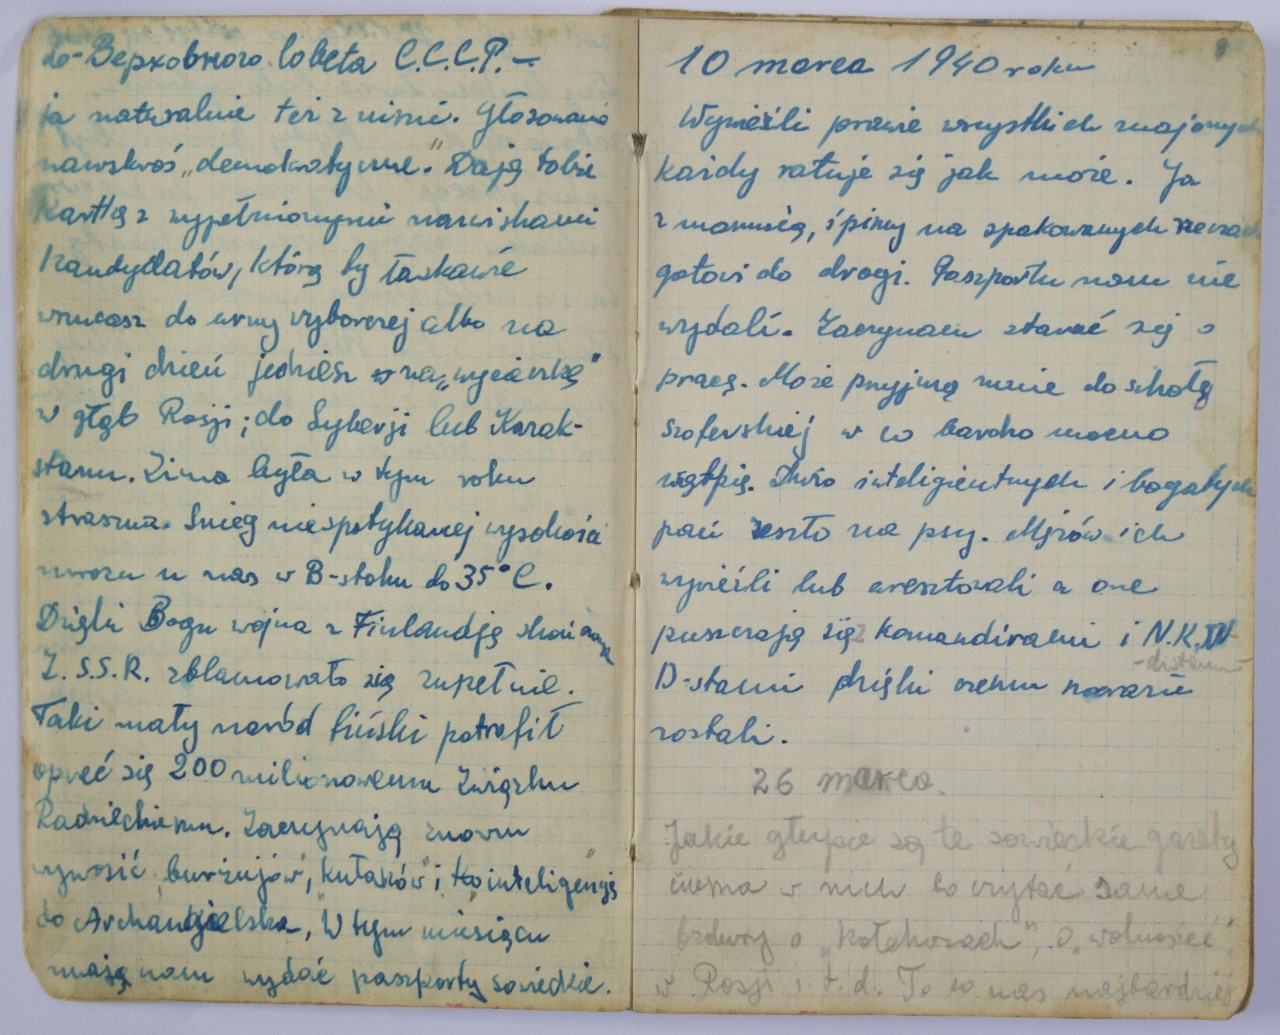 do Верховного Совета С.С.С.Р. –
ja naturalnie też z nimi. Głosowanie
nawskroś „demokratyczne." Dają tobie
kartkę z wypełnionymi nazwiskami
kandydatów, którą by łaskawie
wrzucasz do urny wyborczej albo na
drugi dzień jedziesz na „wycieczkę"
w głąb Rosji; do Syberji lub Kazak-
stanu. Zima była w tym roku
straszna. Śnieg niespotykanej wysokości
mrozu u nas w B-stoku do 35°C.
Dzięki Bogu wojna z Finlandją skończona
Z.S.S.R. zblamowało się zupełnie.
Taki mały naród fiński potrafił
oprzeć się 200 milionowemu Związku
Radzieckiemu. Zaczynają znowu
wywozić „burżujów", „kułaków" i inteligencję
do Archangielska, W tym miesiącu
mają nam wydać paszporty sowieckie.
9
10 marca 1940 roku
Wywieźli prawie wszystkich znajomych
każdy ratuje się jak może. Ja
z mamusią, śpimy na spakowanych rzeczach
gotowi do drogi. Paszportu nam nie
wydali. Zaczynam starać się o
pracę. Może przyjmą mnie do szkoły
szoferskiej w co bardzo mocno
wątpię. Dużo inteligientnych i bogatych
pań zeszło na psy. Mężów ich
wywieźli lub aresztowali a one
puszczają się z komandirami i N.K.W
-dzistami-
D-stami dzięki czemu narazie
zostali.
26 marca.
Jakie głupie są te sowieckie gazety
niema w nich co czytać same
brdury o „kołchozach", o „wolności"
w Rosji i t. d. To co nas najbardziej